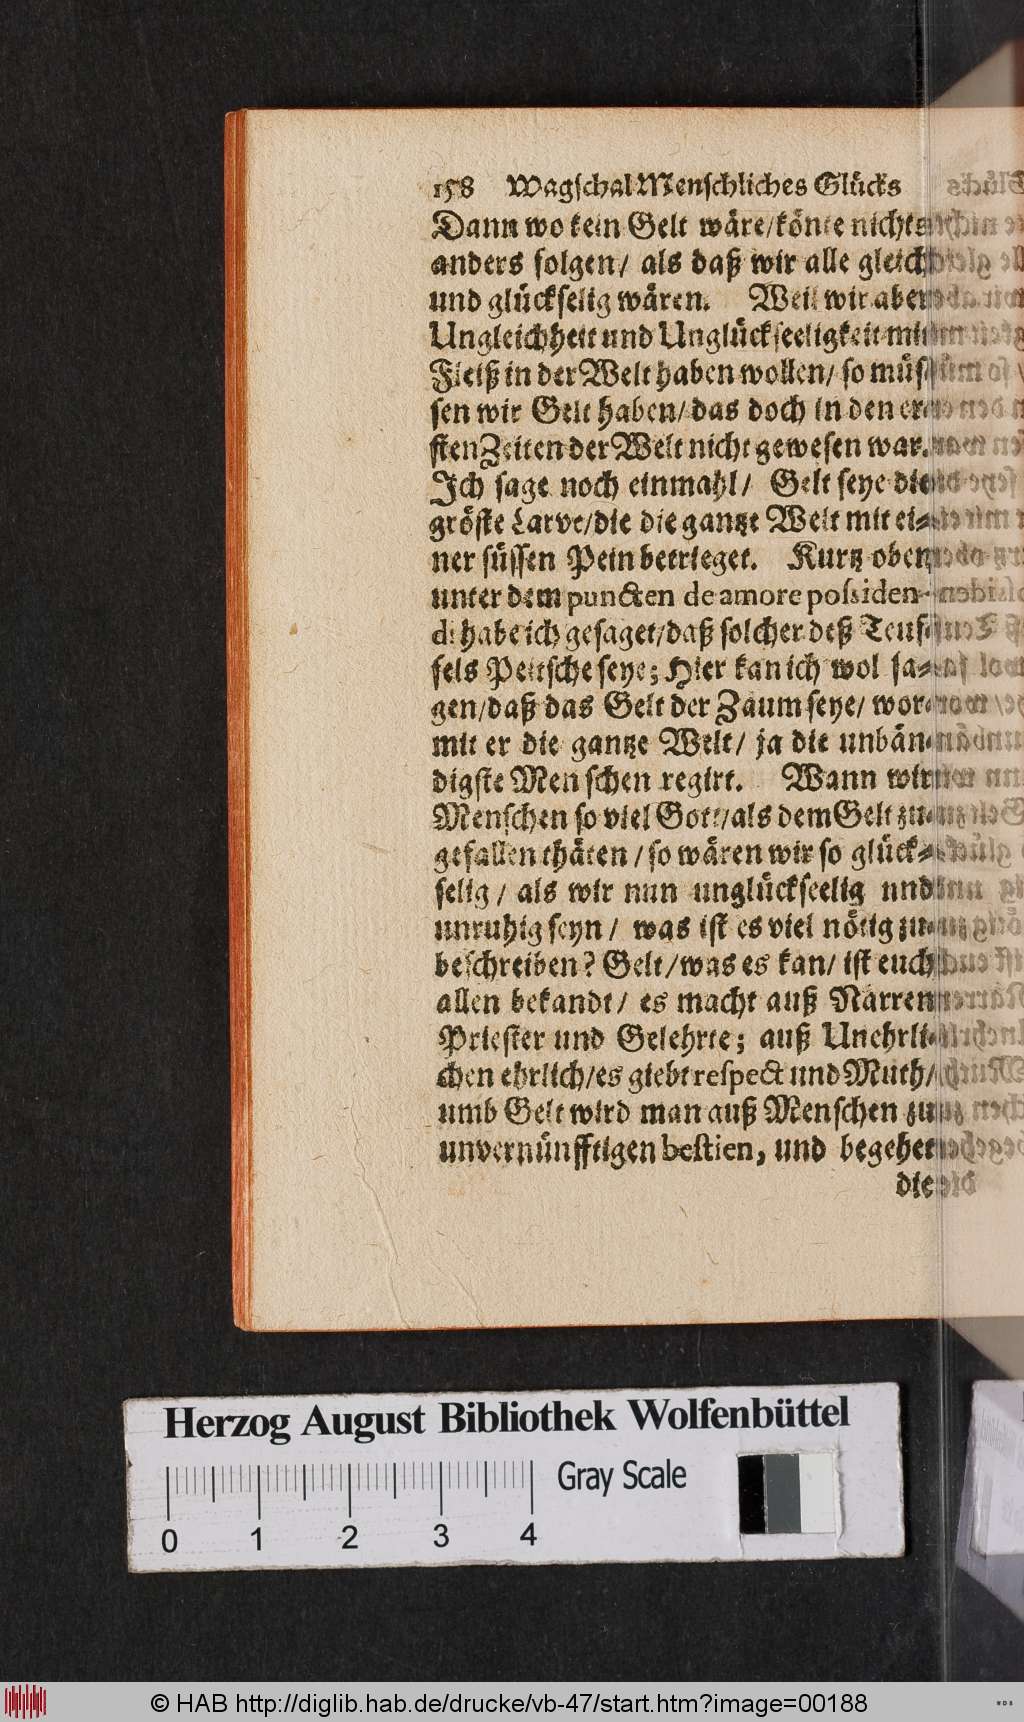 158 Wagschal Menschliches Glücks
Dann wo kein Gelt wäre/ könte nichts
anders folgen/ als daß wir alle gleich
und glückselig wären. Weil wir aber
Ungleichheit und Unglückseeligkeit mit
Fleiß in der Welt haben wollen/ so müs-
sen wir Gelt haben/ das doch in den er-
sten Zeiten der Welt nicht gewesen war.
Ich sage noch einmahl/ Gelt seye die
gröste Larve/ die die gantze Welt mit ei-
ner süssen Pein betrieget. Kurtz oben
unter dem puncten de amore possiden-
di habe ich gesaget/ daß solcher deß Teuf-
fels Peitsche seye; Hier kan ich wol sa-
gen/ daß das Gelt der Zaum seye/ wor-
mit er die gantze Welt/ ja die unbän-
digste Menschen regirt. Wann wir
Menschen so viel Gott/ als dem Gelt zu-
gefallen thäten / so wären wir so glück-
selig / als wir nun unglückseelig und
unruhig seyn / was ist es viel nötig zu
beschreiben? Gelt/ was es kan/ ist euch
allen bekandt/ es macht auß Narren
Priester und Gelehrte; auß Unehrli-
chen ehrlich/ es giebt respect und Muth/
umb Gelt wird man auß Menschen zu
unvernünfftigen bestien, und begehet
die
Herzog August Bibliothek Wolfenbüttel
Gray Scale
0 1 2 3 4
© HAB http://diglib.hab.de/drucke/vb-47/start.htm?image=00188